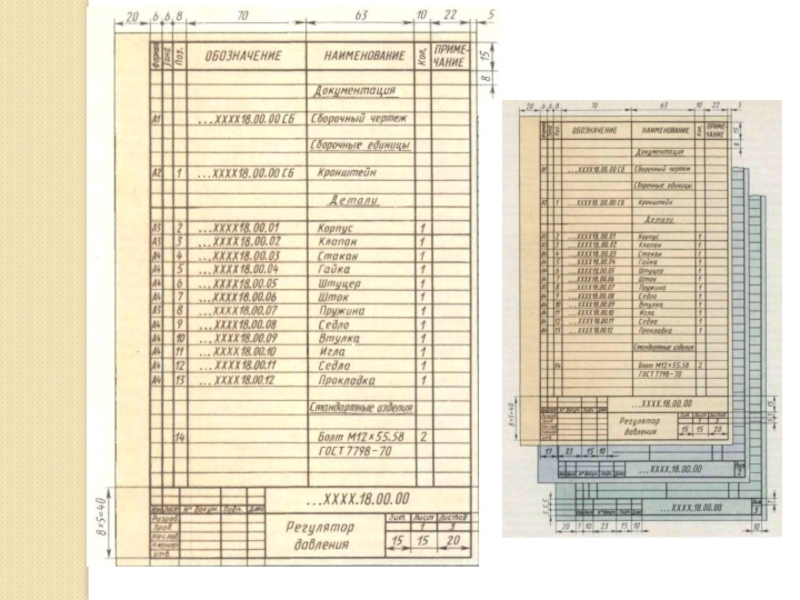 20 6 6 8 70 63 10 22 5
Формат Зона Поз. ОБОЗНАЧЕНИЕ НАИМЕНОВАНИЕ Кол. ПРИМЕ-
ЧАНИЕ
15
8
Документация
А1 ...XXXX18.00.00 СБ Сборочный чертеж
Сборочные единицы
А2 1 ...XXXX18.00.00 СБ Кронштейн
Детали
А3 2 ...XXXX18.00.01 Корпус 1
А3 3 ...XXXX18.00.02 Клапан 1
А4 4 ...XXXX18.00.03 Стакан 1
А4 5 ...XXXX18.00.04 Гайка 1
А4 6 ...XXXX18.00.05 Штуцер 1
А4 7 ...XXXX18.00.06 Шток 1
А3 8 ...XXXX18.00.07 Пружина 1
А4 9 ...XXXX18.00.08 Седло 1
А4 10 ...XXXX18.00.09 Втулка 1
А4 11 ...XXXX18.00.10 Игла 1
А4 12 ...XXXX18.00.11 Седло 1
А4 13 ...XXXX18.00.12 Прокладка 1
Стандартные изделия
14 Болт М12×55.58 2
ГОСТ 7798-70
8×5=40
...XXXX.18.00.00
№ докум. Подп. Дата
Разраб.
Пров.
Нач.лаб
Н.контр
Утв.
Регулятор
давления
Лит. Лист Листов
3
15 15 20
20 6 6 8 70 63 10 22 5
ОБОЗНАЧЕНИЕ НАИМЕНОВАНИЕ Кол. ПРИМЕ-
ЧАНИЕ
15
8
Документация
А1 ...XXXX18.00.00 СБ Сборочный чертеж
Сборочные единицы
А2 1 ...XXXX18.00.00 СБ Кронштейн
Детали
А3 2 ...XXXX18.00.01 Корпус 1
А3 3 ...XXXX18.00.02 Клапан 1
А4 4 ...XXXX18.00.03 Стакан 1
А4 5 ...XXXX18.00.04 Гайка 1
А4 6 ...XXXX18.00.05 Штуцер 1
А4 7 ...XXXX18.00.06 Шток 1
А3 8 ...XXXX18.00.07 Пружина 1
А4 9 ...XXXX18.00.08 Седло 1
А4 10 ...XXXX18.00.09 Втулка 1
А4 11 ...XXXX18.00.10 Игла 1
А4 12 ...XXXX18.00.11 Седло 1
А4 13 ...XXXX18.00.12 Прокладка 1
Стандартные изделия
14 Болт М12×55.58 2
ГОСТ 7798-70
8×5=40
...XXXX.18.00.00
Регулятор
давления
Лит. Лист Листов
3
15 15 20
17 23 15 10
...XXXX.18.00.00
2
...XXXX.18.00.00
3
20 7 10 23 15 10 10